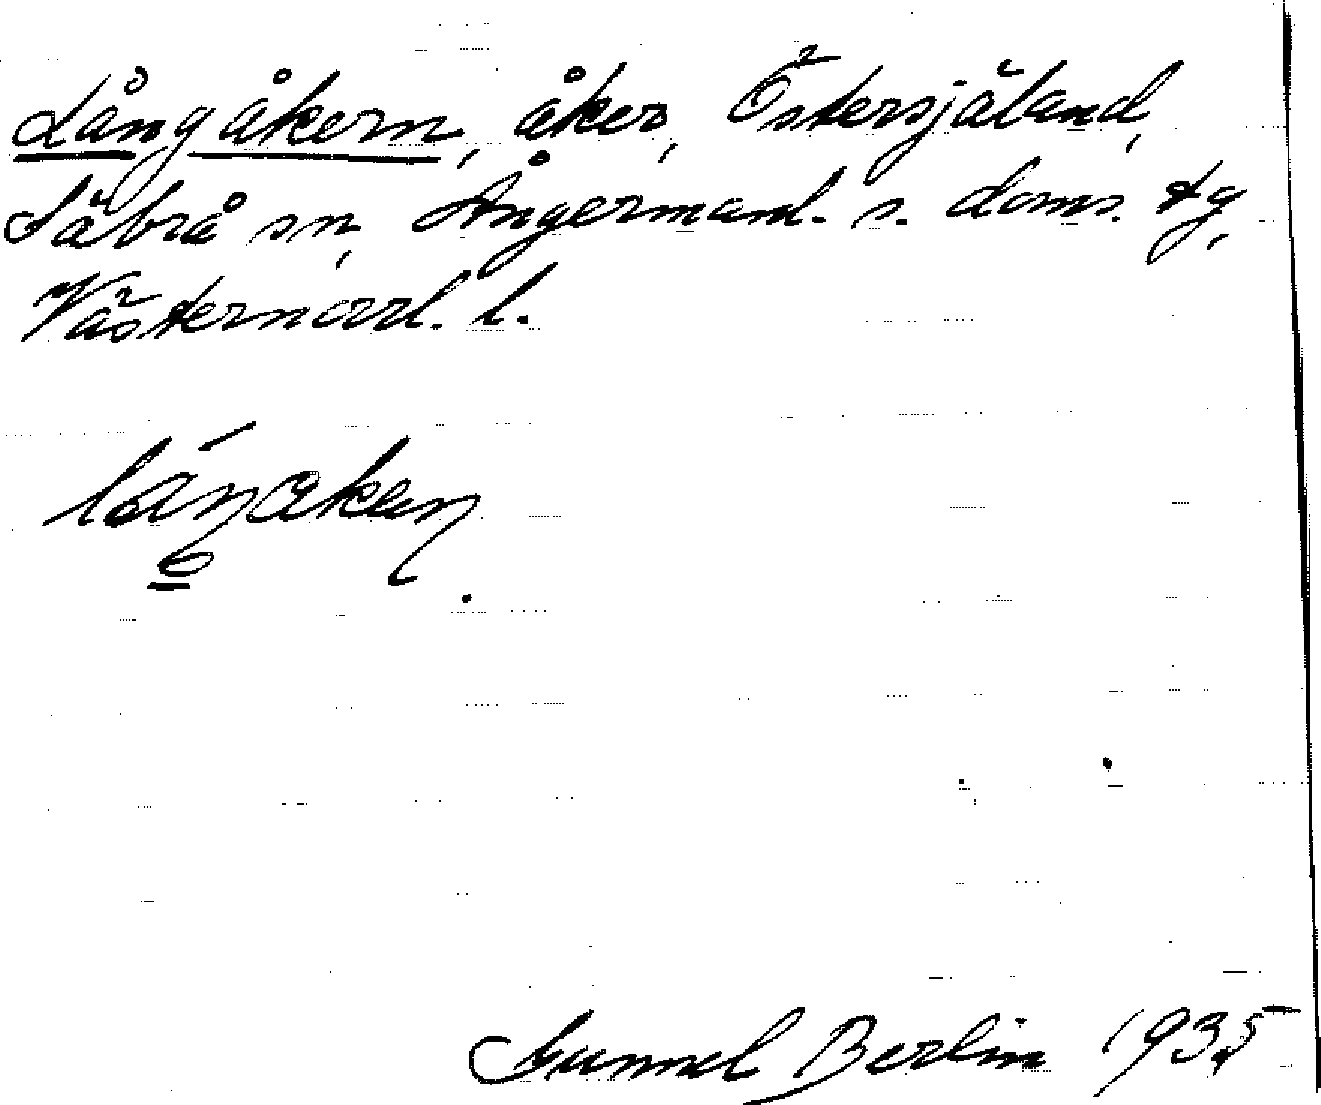 Långåkern, åker, Östersjäland,
Säbrå sn, Ångermanl. s. doms. tg,
Västernorrl. l.
Gunnel Berlin 1935